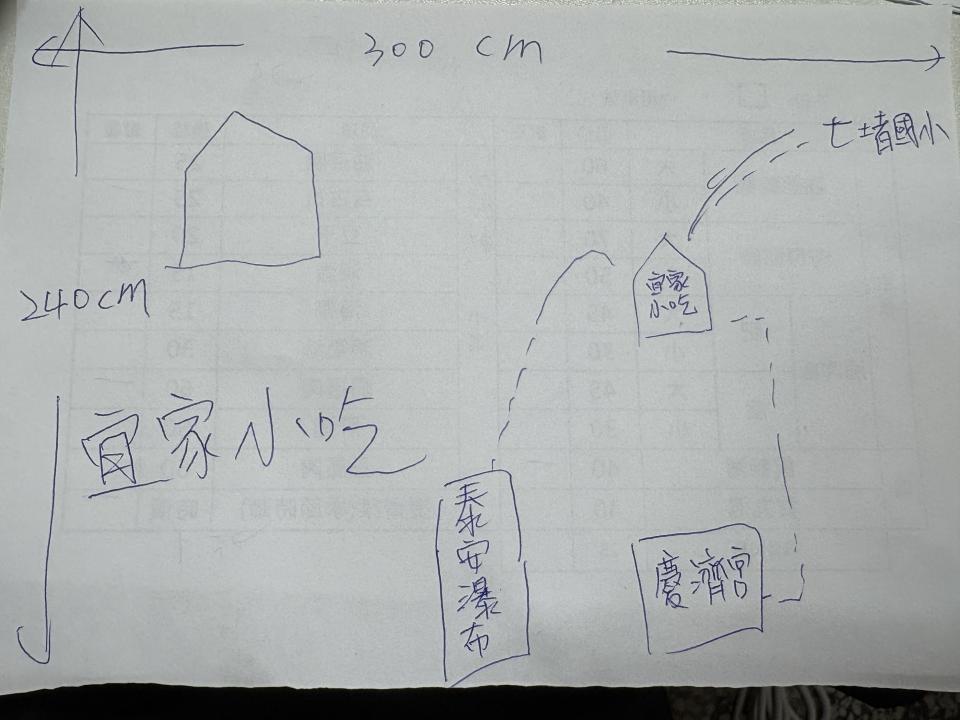 300 cm
七堵國小
宜家
小吃
240cm
宜家小吃
泰安瀑布
慶濟宮